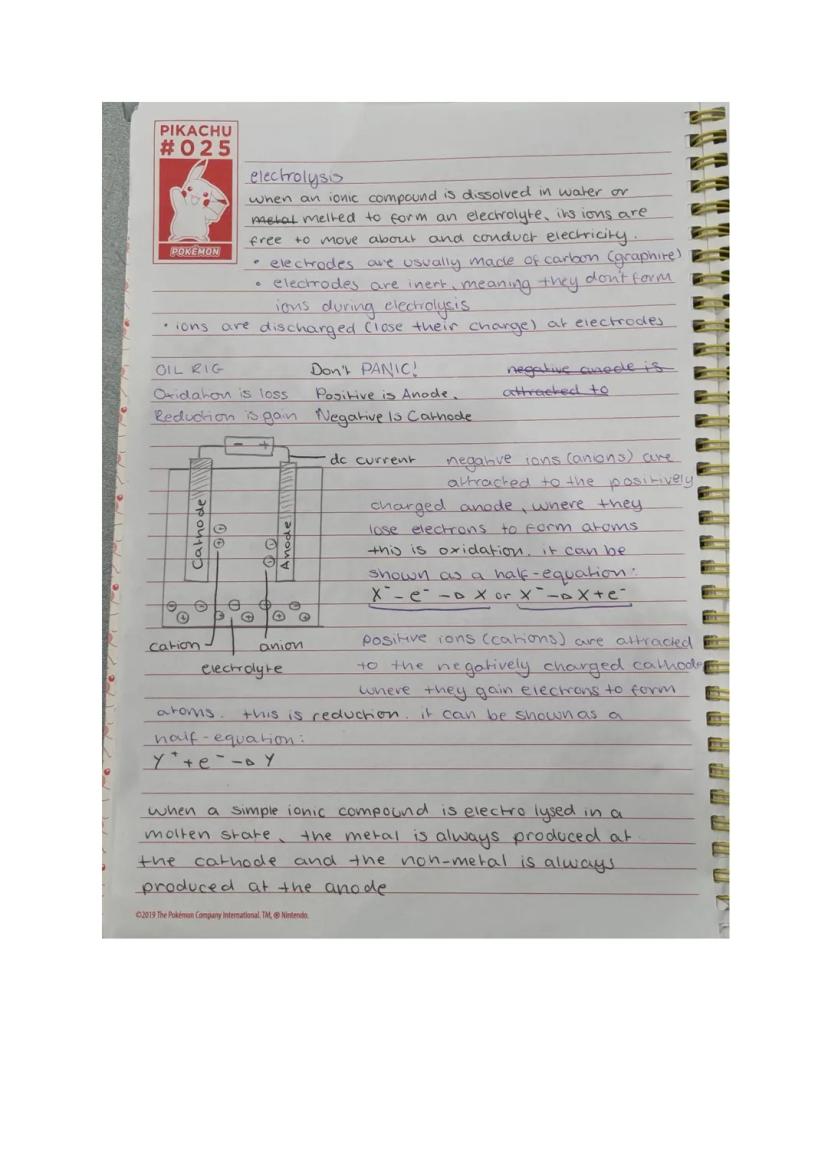 PIKACHU
#025
POKÉMON
electrolysis
when an ionic compound is dissolved in water or
metal melted to form an electrolyte, its ions are
free to move about and conduct electricity.
• electrodes are usually made of carbon (graphite)
• electrodes are inert, meaning they don't form
ions during electrolysis
• ions are discharged (lose their charge) at electrodes
OIL RIG Don't PANIC! negative anode is
Oxidation is loss Positive is Anode. attracted to
Reduction is gain Negative Is Cathode
- +
dc current
Cathode
Anode
cation
anion
electrolyte
negative ions (anions) are
attracted to the positively
charged anode, where they
lose electrons to form atoms
this is oxidation. it can be
shown as a half-equation:
X⁻ - e⁻ → X or X⁻ → X + e⁻
positive ions (cations) are attracted
to the negatively charged cathode
where they gain electrons to form
atoms. this is reduction. it can be shown as a
half-equation:
Y⁺ + e⁻ → Y
when a simple ionic compound is electro lysed in a
molten state, the metal is always produced at
the cathode and the non-metal is always
produced at the anode
©2019 The Pokémon Company International. TM, ® Nintendo.